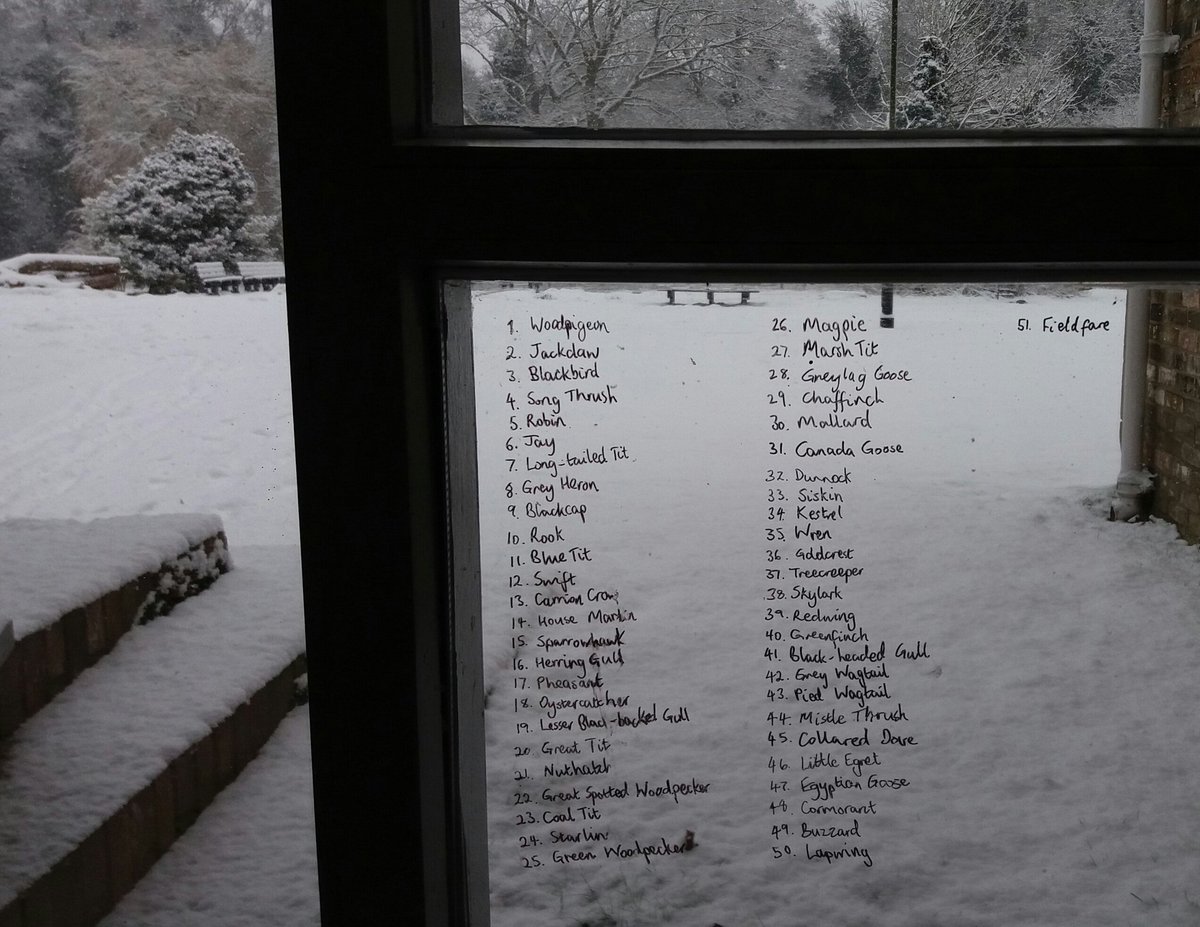 1. Woodpigeon
2. Jackdaw
3. Blackbird
4. Song Thrush
5. Robin
6. Jay
7. Long-tailed Tit
8. Grey Heron
9. Blackcap
10. Rook
11. Blue Tit
12. Swift
13. Carrion Crow
14. House Martin
15. Sparrowhawk
16. Herring Gull
17. Pheasant
18. Oystercatcher
19. Lesser Black-backed Gull
20. Great Tit
21. Nuthatch
22. Great Spotted Woodpecker
23. Coal Tit
24. Starlin
25. Green Woodpecker
26. Magpie
27. Marsh Tit
28. Greylag Goose
29. Chaffinch
30. Mallard
31. Canada Goose
32. Dunnock
33. Siskin
34. Kestrel
35. Wren
36. Goldcrest
37. Treecreeper
38. Skylark
39. Redwing
40. Greenfinch
41. Black-headed Gull
42. Grey Wagtail
43. Pied Wagtail
44. Mistle Thrush
45. Collared Dove
46. Little Egret
47. Egyptian Goose
48. Cormorant
49. Buzzard
50. Lapwing
51. Fieldfare